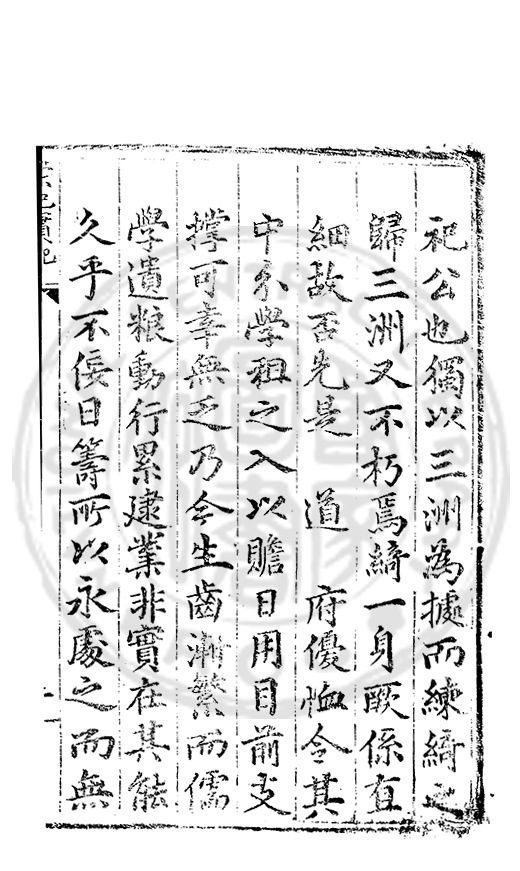 祀公也獨以三洲為據而練綺之
歸三洲又不朽焉綺一身厥係豈
細故否先是 道 府優恤令其
中分學租之入以贍日用目前支
撐可幸無乏乃今生齒漸繁而儒
學遺粮動行累逮業非實在其能
久乎不佞日籌所以永處之而無